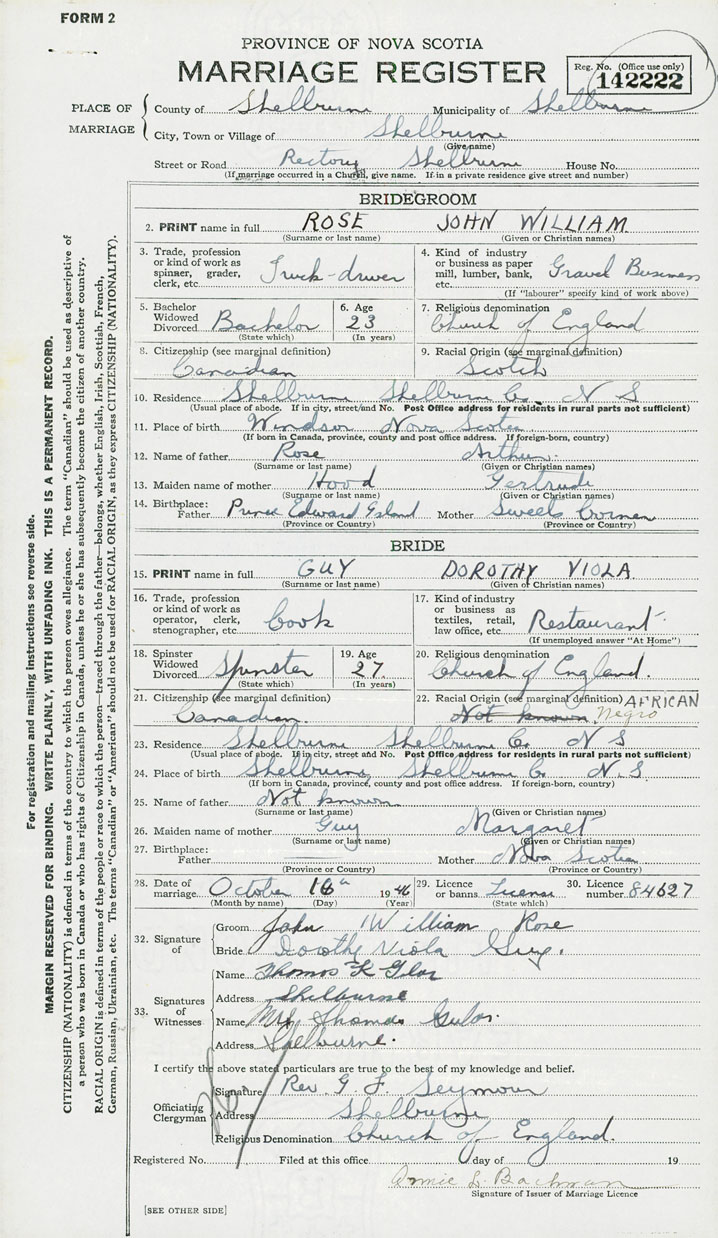 FORM 2
PROVINCE OF NOVA SCOTIA
MARRIAGE REGISTER
Reg. No. (Office use only)
142222
PLACE OF MARRIAGE
County of Shelburne Municipality of Shelburne
City, Town or Village of Shelburne
(Give name)
Street or Road Rectory Shelburne House No.
(If marriage occurred in a Church, give name. If in a private residence give street and number)
BRIDEGROOM
2. PRINT name in full ROSE JOHN WILLIAM
(Surname or last name) (Given or Christian names)
3. Trade, profession or kind of work as spinner, grader, clerk, etc. Truck-driver
4. Kind of industry or business as paper mill, lumber, bank, etc. Gravel Business
(If "labourer" specify kind of work above)
5. Bachelor Widowed Divorced Bachelor
(State which)
6. Age 23
(In years)
7. Religious denomination
Church of England
8. Citizenship (see marginal definition)
Canadian
9. Racial Origin (see marginal definition)
Scotch
10. Residence Shelburne Shelburne Co. N S
(Usual place of abode. If in city, street and No. Post Office address for residents in rural parts not sufficient)
11. Place of birth Windsor Nova Scotia
(If born in Canada, province, county and post office address. If foreign-born, country)
12. Name of father Rose Arthur
(Surname or last name) (Given or Christian names)
13. Maiden name of mother Hood Gertrude
(Surname or last name) (Given or Christian names)
14. Birthplace: Father Prince Edward Island Mother Sweets Corner
(Province or Country) (Province or Country)
BRIDE
15. PRINT name in full GUY DOROTHY VIOLA
(Surname or last name) (Given or Christian names)
16. Trade, profession or kind of work as operator, clerk, stenographer, etc. Cook
17. Kind of industry or business as textiles, retail, law office, etc. Restaurant
(If unemployed answer "At Home")
18. Spinster Widowed Divorced Spinster
(State which)
19. Age 27
(In years)
20. Religious denomination
Church of England.
21. Citizenship (see marginal definition)
Canadian.
22. Racial Origin (see marginal definition) AFRICAN
Not known Negro
23. Residence Shelburne Shelburne Co. N S
(Usual place of abode. If in city, street and No. Post Office address for residents in rural parts not sufficient)
24. Place of birth Shelburne, Shelburne Co. N. S
(If born in Canada, province, county and post office address. If foreign-born, country)
25. Name of father Not known
(Surname or last name) (Given or Christian names)
26. Maiden name of mother Guy Margaret
(Surname or last name) (Given or Christian names)
27. Birthplace: Father — Mother Nova Scotia
(Province or Country) (Province or Country)
28. Date of marriage October 16th 1946
(Month by name) (Day) (Year)
29. Licence or banns License
(State which)
30. Licence number 84627
32. Signature of
Groom John William Rose
Bride Dorothy Viola Guy.
33. Signatures of Witnesses
Name Thomas K
Address Shelburne
Name Mrs Thomas
Address Shelburne.
I certify the above stated particulars are true to the best of my knowledge and belief.
Officiating Clergyman
Signature Rev. G. F. Seymour
Address Shelburne
Religious Denomination Church of England.
Registered No. Filed at this office day of 19
Annie L. Bachman
Signature of Issuer of Marriage Licence
[SEE OTHER SIDE]
For registration and mailing instructions see reverse side.
MARGIN RESERVED FOR BINDING. WRITE PLAINLY, WITH UNFADING INK. THIS IS A PERMANENT RECORD.
CITIZENSHIP (NATIONALITY) is defined in terms of the country to which the person owes allegiance. The term "Canadian" should be used as descriptive of
a person who was born in Canada or who has rights of Citizenship in Canada, unless he or she has subsequently become the citizen of another country.
RACIAL ORIGIN is defined in terms of the people or race to which the person—traced through the father—belongs, whether English, Irish, Scottish, French,
German, Russian, Ukrainian, etc. The terms "Canadian" or "American" should not be used for RACIAL ORIGIN, as they express CITIZENSHIP (NATIONALITY).